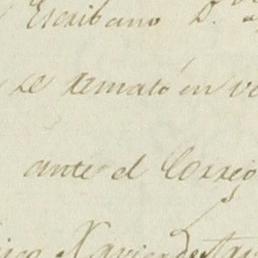 Escribano D.
se remató en
ante el Correg
Xavier de